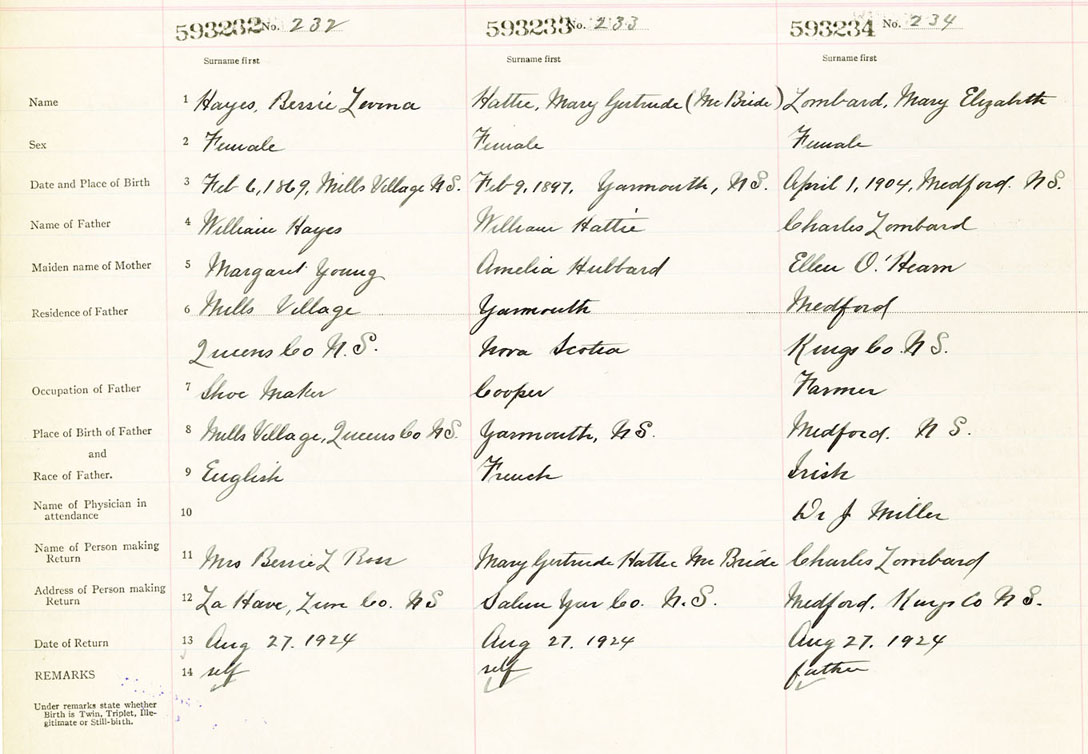 593232 No. 232 593233 No. 233 593234 No. 234
Surname first Surname first Surname first
Name 1 Hayes, Bessie Levina Hattie, Mary Gertrude (McBride) Lombard, Mary Elizabeth
Sex 2 Female Female Female
Date and Place of Birth 3 Feb 6, 1869, Mills Village N.S. Feb 9, 1897, Yarmouth, N.S. April 1, 1904, Medford. N S.
Name of Father 4 William Hayes William Hattie Charles Lombard
Maiden name of Mother 5 Margaret Young Amelia Hubbard Ellen O'Hearn
Residence of Father 6 Mills Village Yarmouth Medford
Queens Co N.S. Nova Scotia Kings Co. N S.
Occupation of Father 7 Shoe Maker Cooper Farmer
Place of Birth of Father 8 Mills Village, Queens Co N.S. Yarmouth, N.S. Medford. N S.
and
Race of Father. 9 English French Irish
Name of Physician in
attendance 10 Dr J Miller
Name of Person making
Return 11 Mrs Bessie L Ross Mary Gertrude Hattie McBride Charles Lombard
Address of Person making
Return 12 La Have, Lun Co. N S Salem Yar Co. N.S. Medford. Kings Co N S.
Date of Return 13 Aug 27. 1924 Aug 27. 1924 Aug 27. 1924
REMARKS 14 self self father
Under remarks state whether
Birth is Twin, Triplet, Ille-
gitimate or Still-birth.